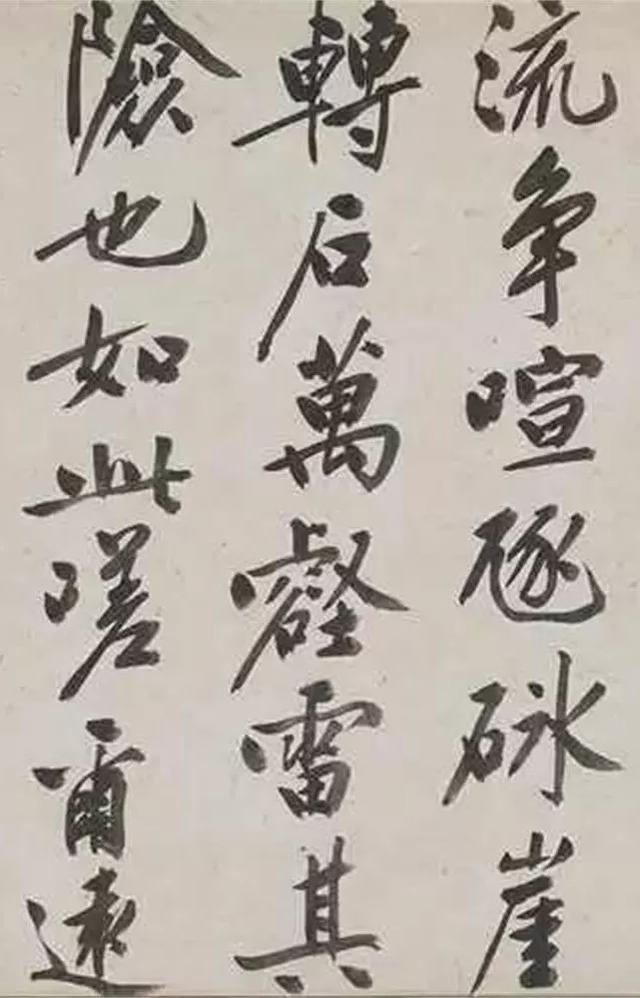 流争喧豗砯崖
轉石萬壑雷其
險也如此嗟爾遠